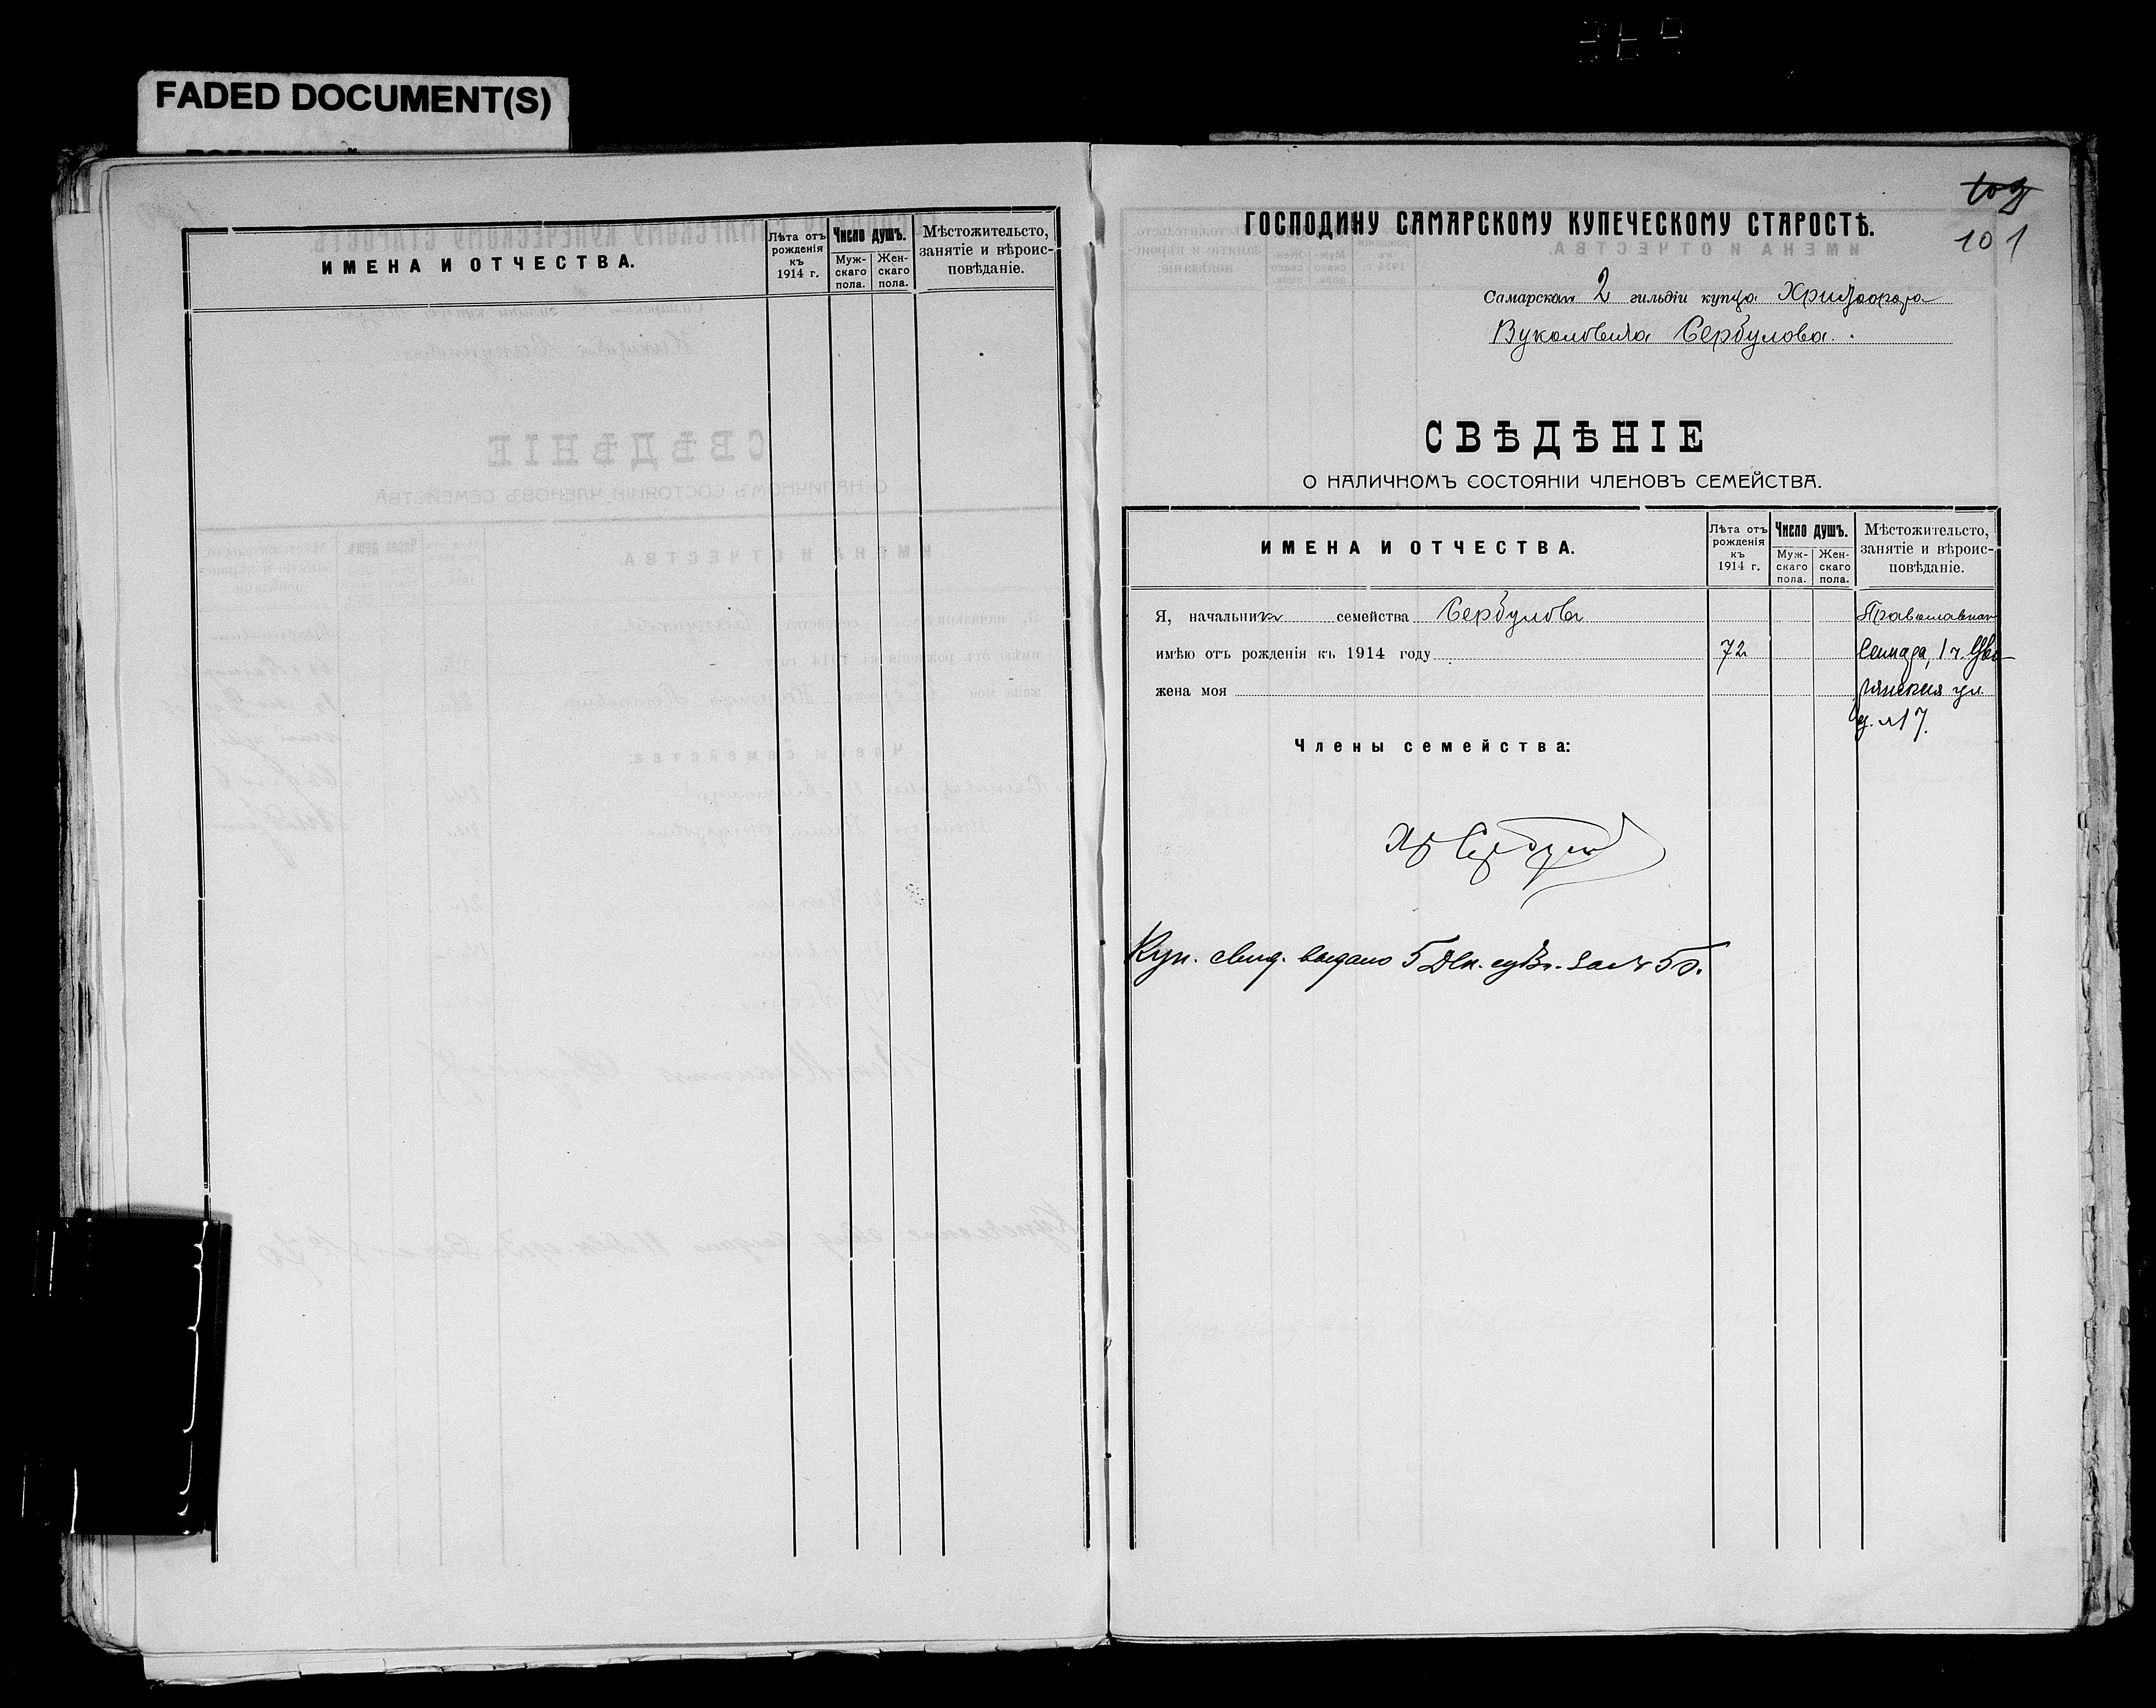 FADED DOCUMENT(S)
ИМЕНА И ОТЧЕСТВА.
Лѣта отъ рожденія къ 1914 г.
Число душъ.
Муж-скаго пола.
Жен-скаго пола.
Мѣстожительсто, занятіе и вѣроис-повѣданіе.
101
ГОСПОДИНУ САМАРСКОМУ КУПЕЧЕСКОМУ СТАРОСТѢ.
Самарскаго 2 гильдіи купца Христофора
Вуколовича Сербулова.
СВѢДѢНІЕ
О НАЛИЧНОМЪ СОСТОЯНІИ ЧЛЕНОВЪ СЕМЕЙСТВА.
ИМЕНА И ОТЧЕСТВА.
Лѣта отъ рожденія къ 1914 г.
Число душъ.
Муж-скаго пола.
Жен-скаго пола.
Мѣстожительсто, занятіе и вѣроис-повѣданіе.
Я, начальникъ семейства Сербуловъ Православнаго
имѣю отъ рожденія къ 1914 году 72
жена моя ул.
д. №17.
Члены семейства:
Хр Сербулов
Куп. свид. выдано 5 Дек. за № 50.